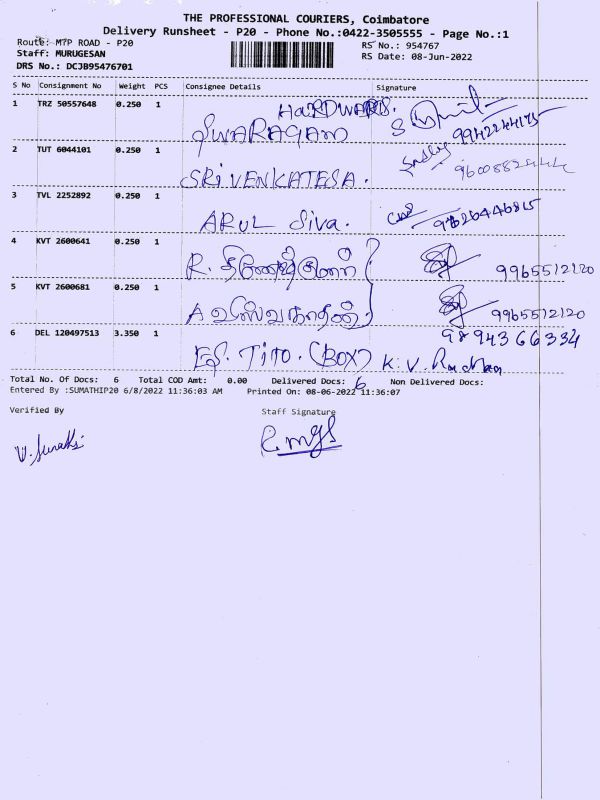 THE PROFESSIONAL COURIERS, Coimbatore
Delivery Runsheet - P20 - Phone No.:0422-3505555 - Page No.:1
Route: MTP ROAD - P20
RS No.: 954767
Staff: MURUGESAN
RS Date: 08-Jun-2022
DRS No.: DCJB95476701
S No Consignment No Weight PCS Consignee Details Signature
1 TRZ 50557648 0.250 1 HARDWARS.
SWARAGAM 9942244175
2 TUT 6044101 0.250 1
SRI VENKATESA.
3 TVL 2252892 0.250 1
ARUL Siva. 9626446815
4 KVT 2600641 0.250 1
R. 9965512120
5 KVT 2600681 0.250 1
A விஸ்வநாதன் 9965512120
6 DEL 120497513 3.350 1 9894366334
TITO. (BOX) K. V.
Total No. Of Docs: 6 Total COD Amt: 0.00 Delivered Docs: 6 Non Delivered Docs:
Entered By :SUMATHIP20 6/8/2022 11:36:03 AM Printed On: 08-06-2022 11:36:07
Verified By Staff Signature